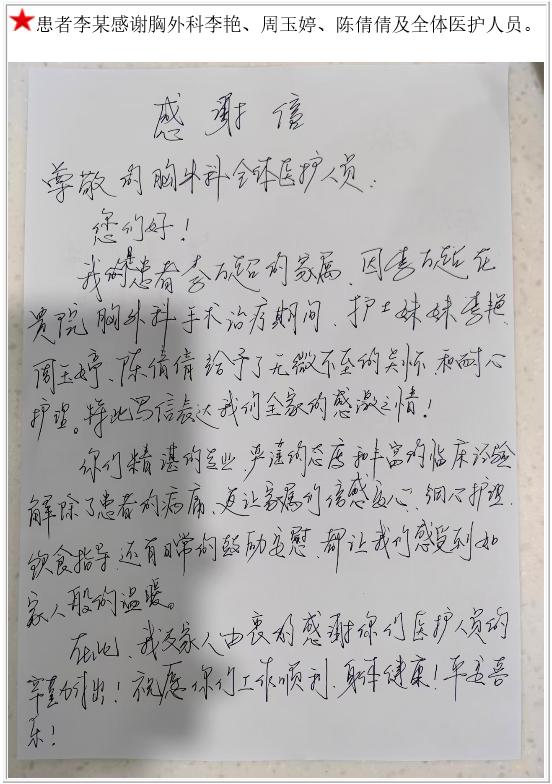 患者李某感谢胸外科李艳、周玉婷、陈倩倩及全体医护人员。
感谢信
尊敬的胸外科全体医护人员:
您们好!
我是患者李百超的家属,因李百超在
贵院胸外科手术治疗期间,护士妹妹李艳、
周玉婷、陈倩倩给予了无微不至的关怀和耐心
护理。特此写信表达我们全家的感激之情!
你们精谌的专业,严谨的态度和丰富的临床经验
解除了患者的病痛,更让家属们倍感安心,细心护理,
饮食指导,还有日常的鼓励安慰,都让我们感受到如
家人般的温暖。
在此,我及家人由衷的感谢你们医护人员的
辛勤付出!祝愿你们工作顺利,身体健康!平安喜
乐!